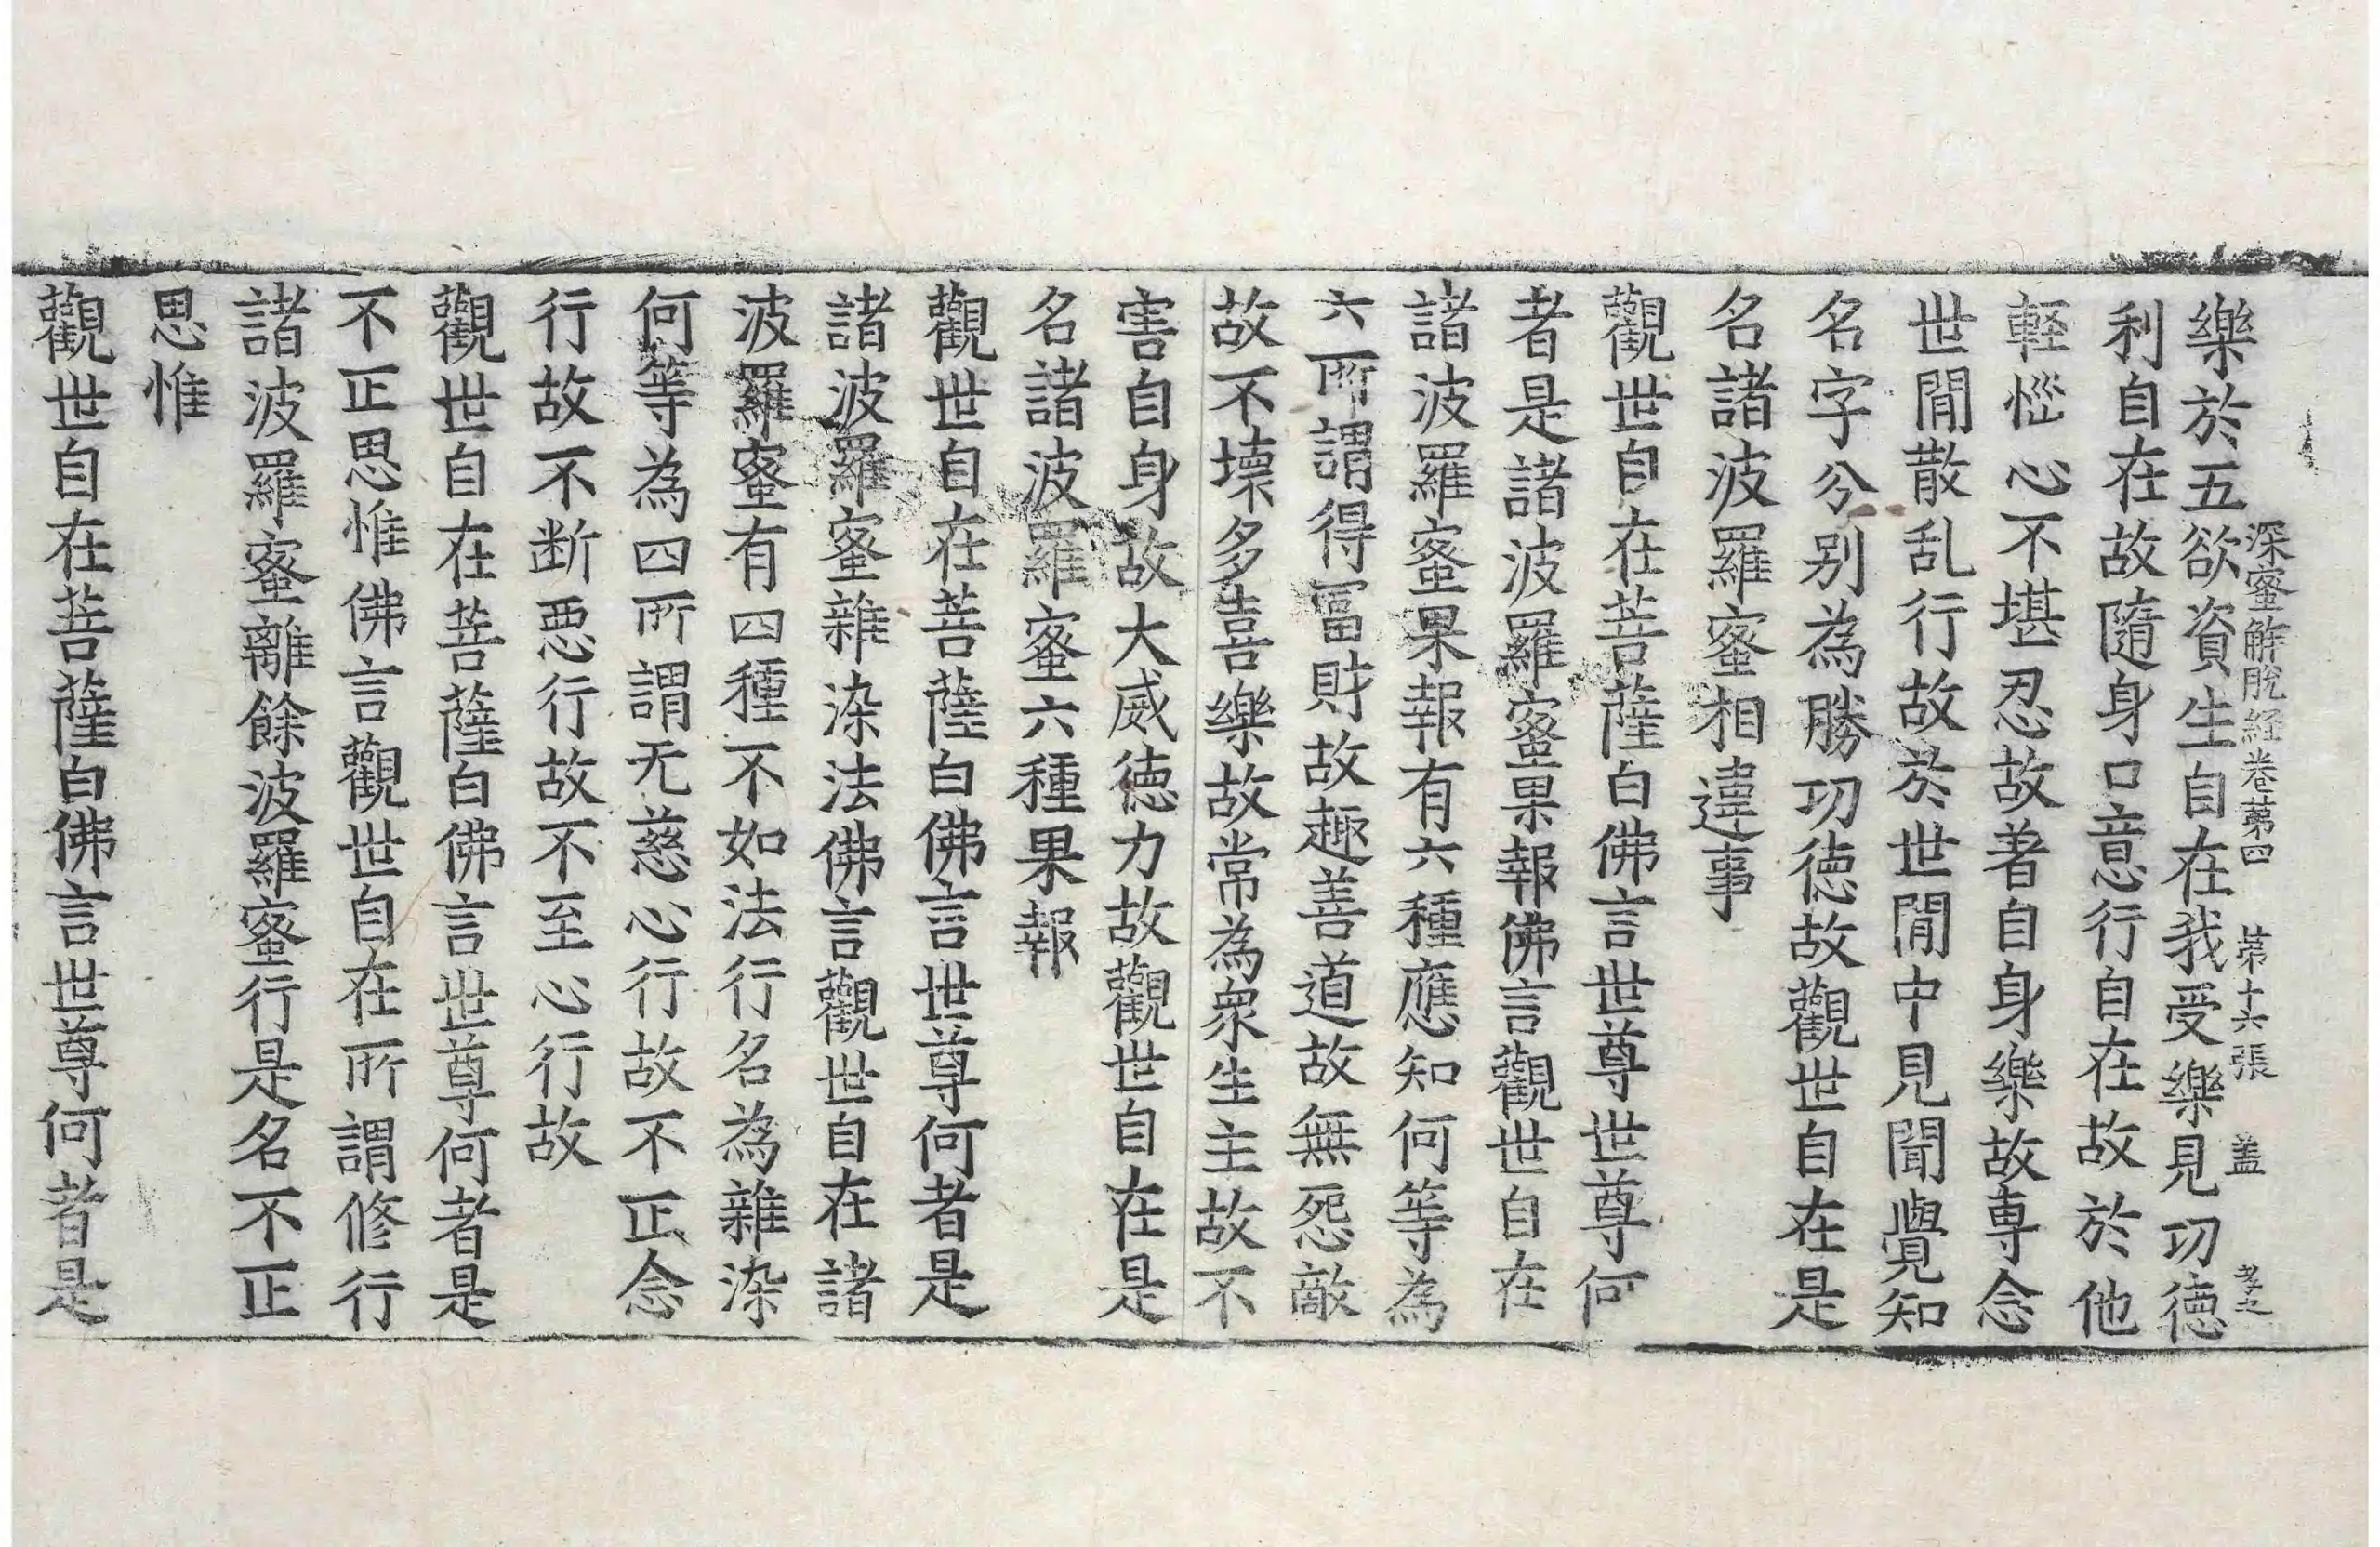 深蜜解脫經卷苐四　苐十六張　盖　孝之
樂於五欲資生自在我受樂見功德
利自在故隨身口意行自在故於他
輕㥛心不堪忍故著自身樂故專念
世閒散乱行故於世閒中見聞覺知
名字分别為勝功德故觀世自在是
名諸波羅蜜相違事
觀世自在菩薩白佛言世尊世尊何
者是諸波羅蜜果報佛言觀世自在
諸波羅蜜果報有六種應知何等為
六所謂得冨財故趣善道故無怨敵
故不壞多喜樂故常為衆生主故不
害自身故大威德力故觀世自在是
名諸波羅蜜六種果報
觀世自在菩薩白佛言世尊何者是
諸波羅蜜雜染法佛言觀世自在諸
波羅蜜有四種不如法行名為雜染
何等為四所謂无慈心行故不正念
行故不断悪行故不至心行故
觀世自在菩薩白佛言世尊何者是
不正思惟佛言觀世自在所謂修行
諸波羅蜜離餘波羅蜜行是名不正
思惟
觀世自在菩薩白佛言世尊何者是